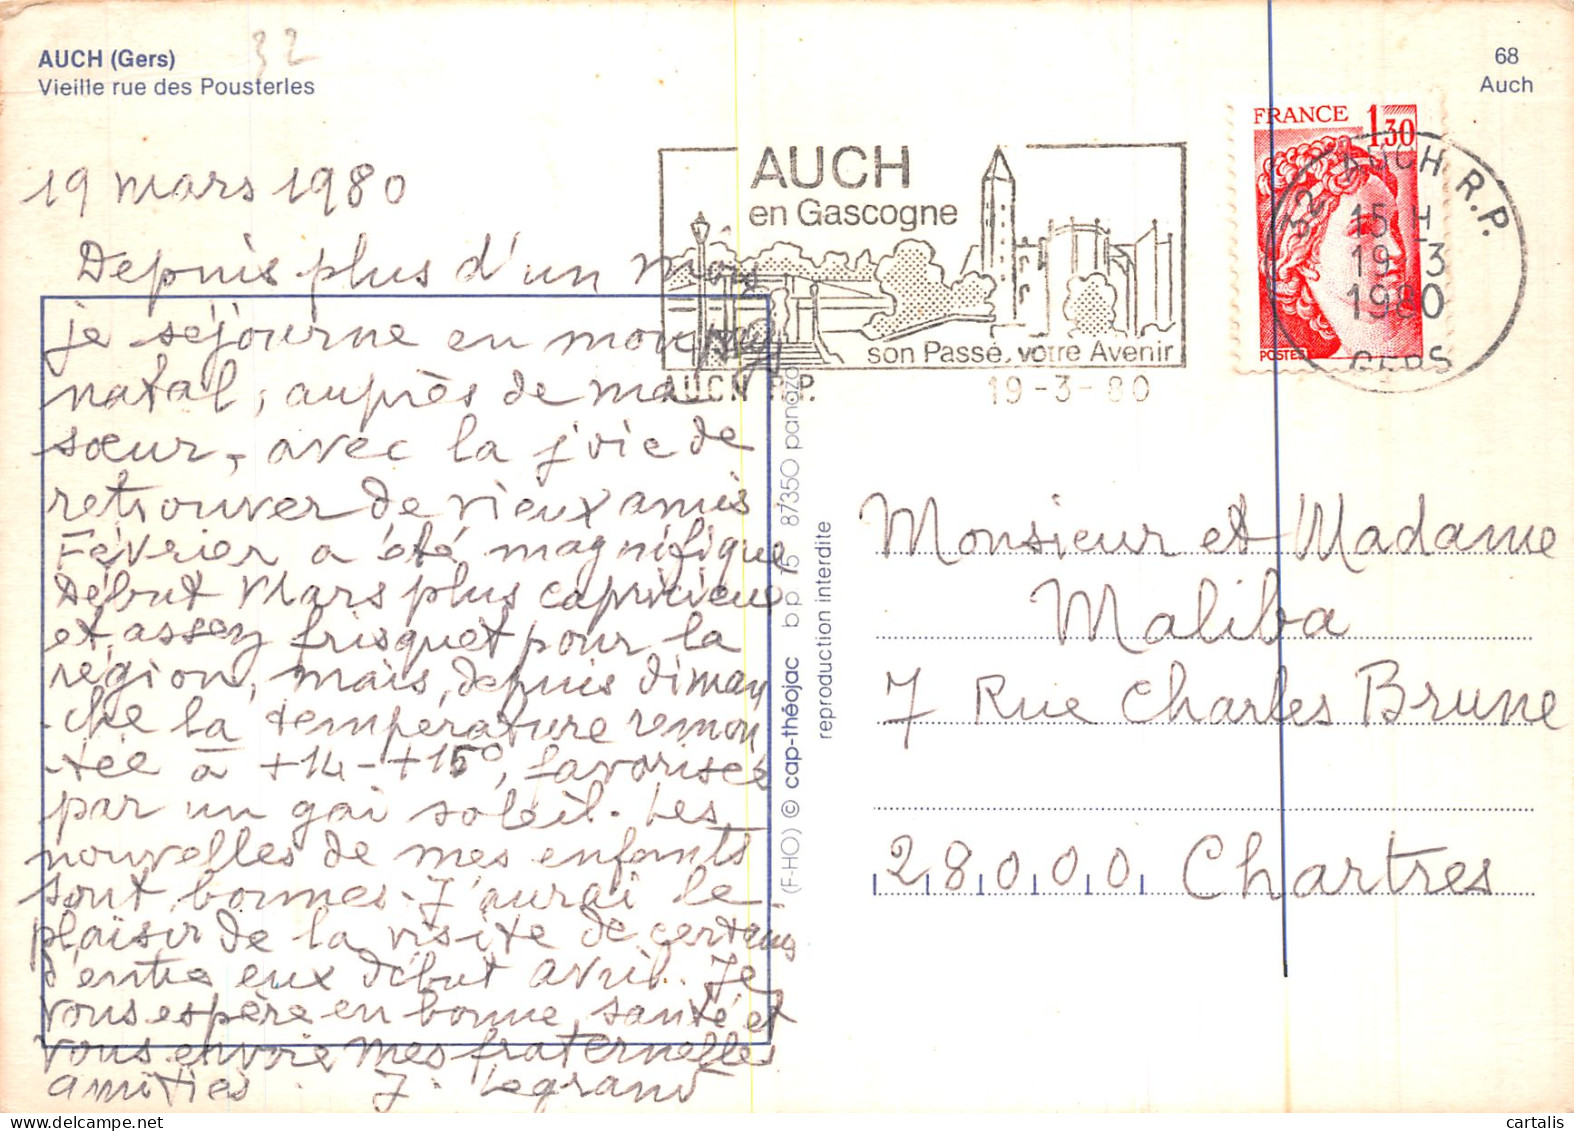 AUCH (Gers)
Vieille rue des Pousterles
32
68
Auch
19 mars 1980
Depuis plus d'un mois
je séjourne en mon pays
natal, auprès de ma
sœur, avec la joie de
retrouver de vieux amis
Février a été magnifique
Début Mars plus capricieux
et assez frisquet pour la
région, mais, depuis diman
-che la température remon
-tée à +14 - +15°, favorisée
par un gai soleil. Les
nouvelles de mes enfants
sont bonnes. J'aurai le
plaisir de la visite de certains
d'entre eux début avril. Je
vous espère en bonne santé et
vous envoie mes fraternelles
amitiés. J. Legrand
AUCH
en Gascogne
son Passé, votre Avenir
AUCH R.P.
19-3-80
FRANCE 1,30
POSTES
32 AUCH R.P.
15 H
19-3
1980
GERS
(F-HO) © cap-théojac bp 15 87350 panazol
reproduction interdite
Monsieur et Madame
Maliba
7 Rue Charles Brune
28000 Chartres
cartalis
www.delcampe.net